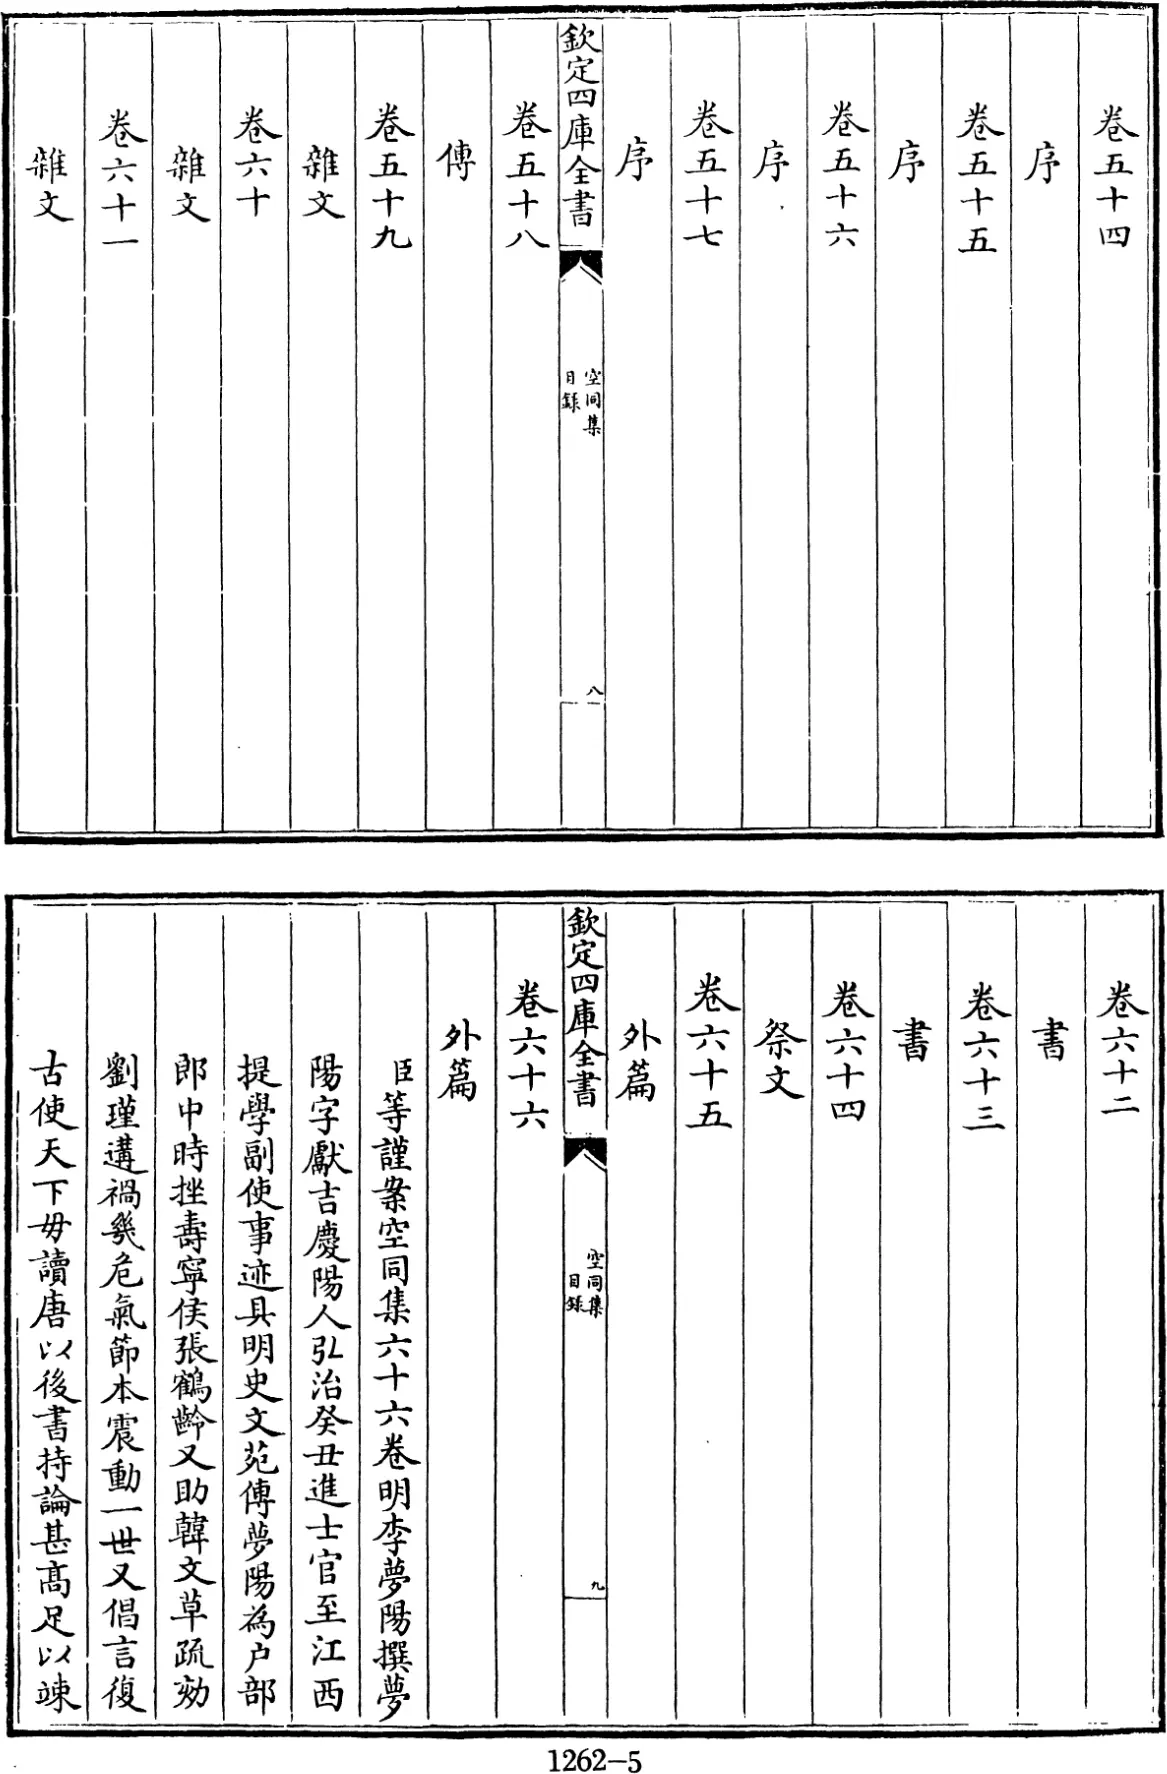 卷五十四
序
卷五十五
序
卷五十六
序
卷五十七
序
欽定四庫全書
空同集
目錄
八
卷五十八
傳
卷五十九
雜文
卷六十
雜文
卷六十一
雜文
卷六十二
書
卷六十三
書
卷六十四
祭文
卷六十五
外篇
欽定四庫全書
空同集
目錄
九
卷六十六
外篇
臣等謹案空同集六十六卷明李夢陽撰夢
陽字獻吉慶陽人弘治癸丑進士官至江西
提學副使事迹具明史文苑傳夢陽為户部
郎中時挫壽寧侯張鶴齡又助韓文草疏劾
劉瑾遘禍幾危氣節本震動一世又倡言復
古使天下毋讀唐以後書持論甚髙足以竦
1262-5